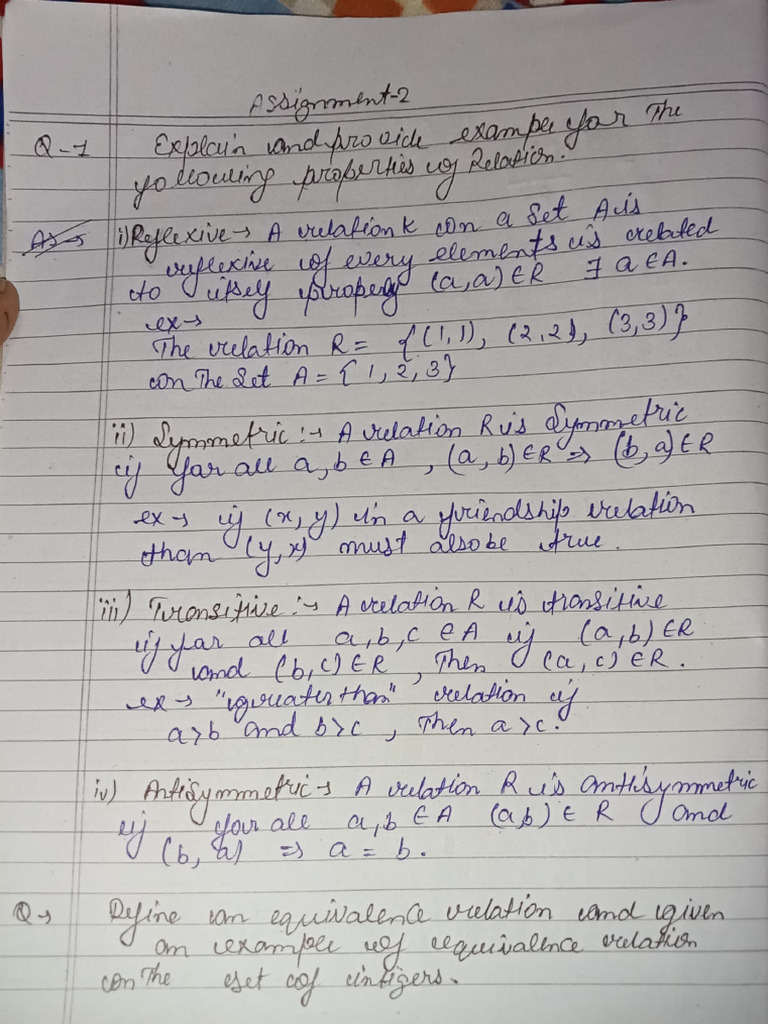 Assignment-2
Q-1 Explain and provide exampe for The
following properties of Relation.
i) Reflexive → A relation R on a Set A is
reflexive if every elements is related
to itself property (a,a) ∈ R ∃ a ∈ A.
ex →
The relation R = {(1,1), (2,2), (3,3)}
on The Set A = {1,2,3}
ii) Symmetric :→ A relation R is Symmetric
if for all a,b ∈ A , (a,b) ∈ R ⇒ (b,a) ∈ R
ex → if (x,y) in a friendship relation
than (y,x) must also be true.
iii) Transitive :→ A relation R is transitive
if for all a,b,c ∈ A if (a,b) ∈ R
and (b,c) ∈ R , Then (a,c) ∈ R.
ex → "greater than" relation if
a>b and b>c , Then a>c.
iv) Antisymmetric → A relation R is antisymmetric
if for all a,b ∈ A (a,b) ∈ R and
(b,a) ⇒ a = b.
Q → Define an equivalence relation and given
an example of equivalence relation
on The set of intigers.